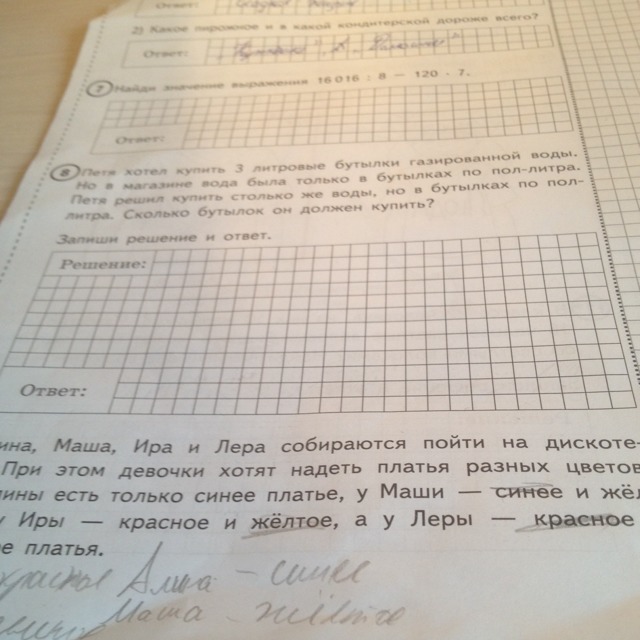 Ответ:
2) Какое пирожное и в какой кондитерской дороже всего?
Ответ:
7 Найди значение выражения 16 016 : 8 — 120 · 7.
Ответ:
8 Петя хотел купить 3 литровые бутылки газированной воды.
Но в магазине вода была только в бутылках по пол-литра.
Петя решил купить столько же воды, но в бутылках по пол-
литра. Сколько бутылок он должен купить?
Запиши решение и ответ.
Решение:
Ответ:
ина, Маша, Ира и Лера собираются пойти на дискоте-
При этом девочки хотят надеть платья разных цветов
ины есть только синее платье, у Маши — синее и жёл
у Иры — красное и жёлтое, а у Леры — красное
е платья.
красное Алина – синее
Маша – жёлтое